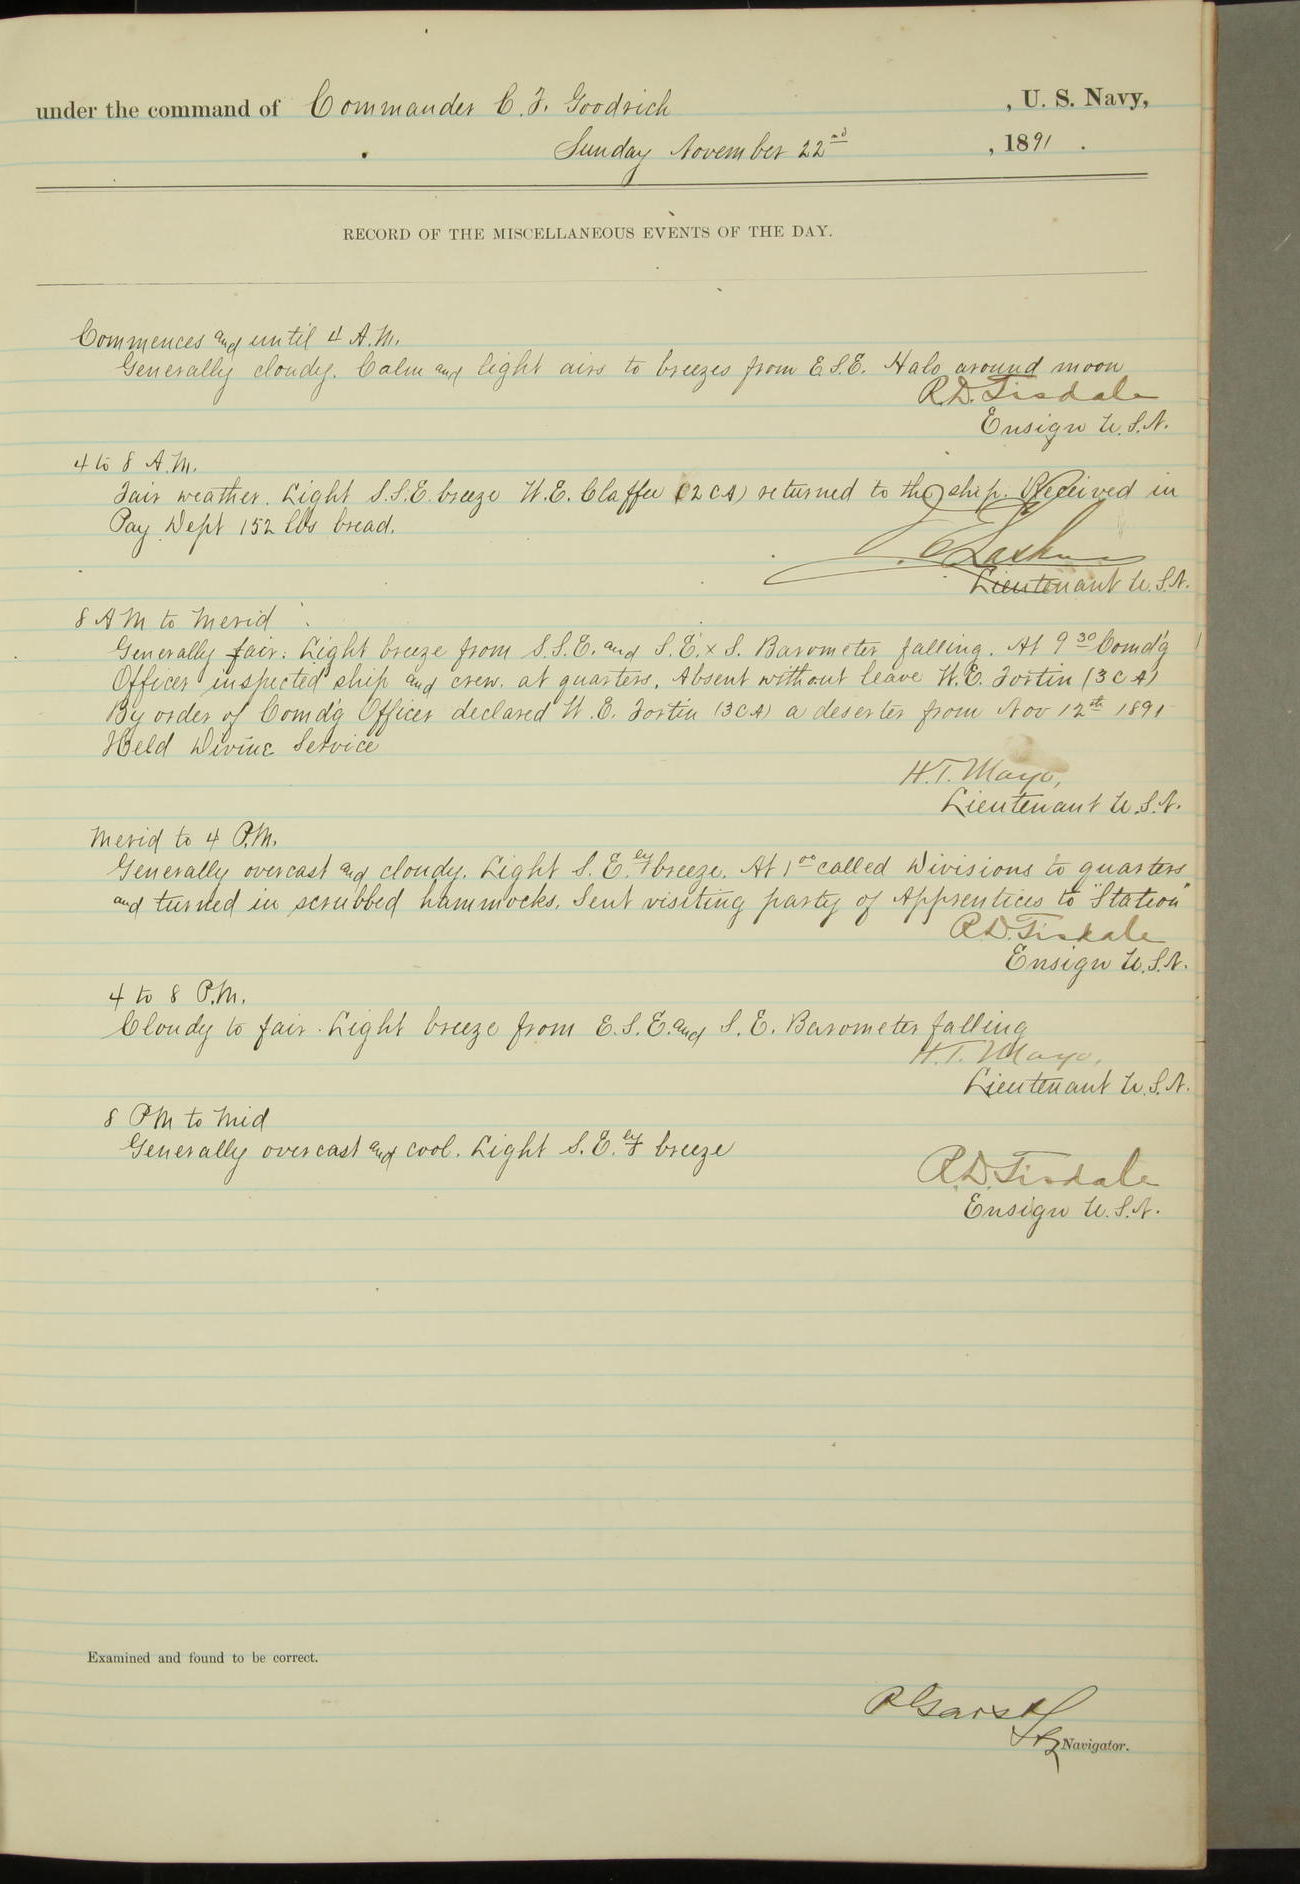 under the command of Commander C. F. Goodrich , U. S. Navy,
Sunday November 22nd , 1891.
RECORD OF THE MISCELLANEOUS EVENTS OF THE DAY.
Commences and until 4 A.M.
Generally cloudy. Calm and light airs to breezes from E.S.E. Halo around moon
R.D. Tisdale
Ensign U.S.N.
4 to 8 A.M.
Fair weather. Light S.S.E. breeze W.E. Claffee (2CA) returned to the ship. Received in
Pay Dept 152 lbs bread.
Lieutenant U.S.N.
8 AM to Merid
Generally fair. Light breeze from S.S.E. and S.E. x S. Barometer falling. At 9 30 Comd'g
Officer inspected ship and crew. at quarters. Absent without leave W.E. Fortin (3CA)
By order of Comd'g Officer declared W.E. Fortin (3CA) a deserter from Nov 12th 1891
Held Divine Service
H.T. Mayo,
Lieutenant U.S.N.
Merid to 4 P.M.
Generally overcast and cloudy. Light S.E.ly breeze. At 1 00 called Divisions to quarters
and turned in scrubbed hammocks. Sent visiting party of Apprentices to "Station"
R.D. Tisdale
Ensign U.S.N.
4 to 8 P.M.
Cloudy to fair. Light breeze from E.S.E. and S.E. Barometer falling
H.T. Mayo,
Lieutenant U.S.N.
8 PM to Mid
Generally overcast and cool. Light S.E.ly breeze
R.D. Tisdale
Ensign U.S.N.
Examined and found to be correct.
P Garst
Navigator.